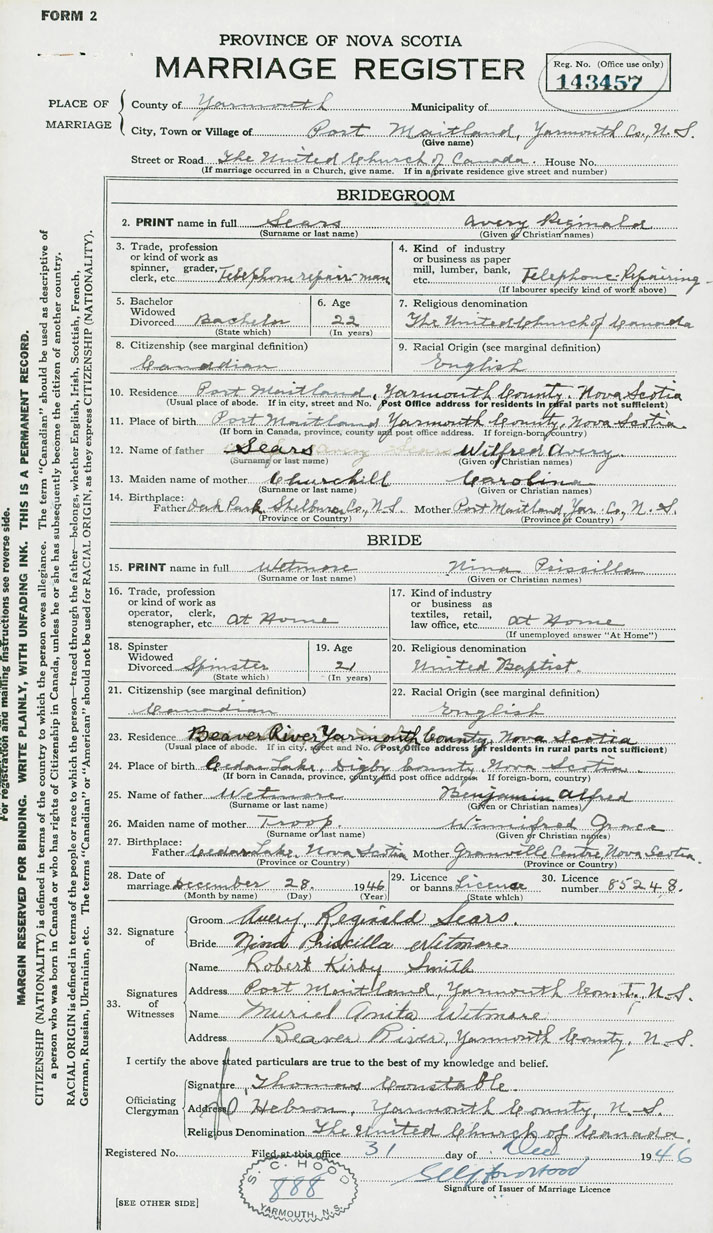 FORM 2
PROVINCE OF NOVA SCOTIA
MARRIAGE REGISTER
Reg. No. (Office use only)
143457
PLACE OF MARRIAGE
County of Yarmouth Municipality of
City, Town or Village of Port Maitland, Yarmouth Co., N.S.
(Give name)
Street or Road The United Church of Canada. House No.
(If marriage occurred in a Church, give name. If in a private residence give street and number)
BRIDEGROOM
2. PRINT name in full Sears Avery Reginald
(Surname or last name) (Given or Christian names)
3. Trade, profession or kind of work as spinner, grader, clerk, etc. Telephone repair-man
4. Kind of industry or business as paper mill, lumber, bank, etc. Telephone-Repairing
(If labourer specify kind of work above)
5. Bachelor Widowed Divorced Bachelor
(State which)
6. Age 22
(In years)
7. Religious denomination
The United Church of Canada
8. Citizenship (see marginal definition)
Canadian
9. Racial Origin (see marginal definition)
English
10. Residence Port Maitland, Yarmouth County, Nova Scotia
(Usual place of abode. If in city, street and No. Post Office address for residents in rural parts not sufficient)
11. Place of birth Port Maitland, Yarmouth County, Nova Scotia.
(If born in Canada, province, county and post office address. If foreign-born, country)
12. Name of father Sears Wilfred Avery
(Surname or last name) (Given or Christian names)
13. Maiden name of mother Churchill Carolina
(Surname or last name) (Given or Christian names)
14. Birthplace:
Father Oak Park, Shelburne Co., N.S. Mother Port Maitland, Yar. Co., N.S.
(Province or Country) (Province or Country)
BRIDE
15. PRINT name in full Wetmore Nina Prissilla
(Surname or last name) (Given or Christian names)
16. Trade, profession or kind of work as operator, clerk, stenographer, etc. At Home
17. Kind of industry or business as textiles, retail, law office, etc. At Home
(If unemployed answer "At Home")
18. Spinster Widowed Divorced Spinster
(State which)
19. Age 21
(In years)
20. Religious denomination
United Baptist.
21. Citizenship (see marginal definition)
Canadian
22. Racial Origin (see marginal definition)
English
23. Residence Beaver River Yarmouth County, Nova Scotia
(Usual place of abode. If in city, street and No. Post Office address for residents in rural parts not sufficient)
24. Place of birth Cedar Lake, Digby County, Nova Scotia.
(If born in Canada, province, county and post office address. If foreign-born, country)
25. Name of father Wetmore Benjamin Alfred
(Surname or last name) (Given or Christian names)
26. Maiden name of mother Troop. Winnifred Grace
(Surname or last name) (Given or Christian names)
27. Birthplace:
Father Cedar Lake, Nova Scotia Mother Granville Centre, Nova Scotia.
(Province or Country) (Province or Country)
28. Date of marriage December 28. 1946
(Month by name) (Day) (Year)
29. Licence or banns Licence
(State which)
30. Licence number 85248.
32. Signature of
Groom Avery Reginald Sears.
Bride Nina Priskilla Wetmore
33. Signatures of Witnesses
Name Robert Kirby Smith
Address Port Maitland, Yarmouth County, N.S.
Name Muriel Anita Wetmore
Address Beaver River, Yarmouth County, N.S.
I certify the above stated particulars are true to the best of my knowledge and belief.
Officiating Clergyman
Signature Thomas Constable.
Address Hebron, Yarmouth County, N.S.
Religious Denomination The United Church of Canada.
Registered No. Filed at this office 31 day of Dec 1946
S. C. HOOD
888
YARMOUTH, N.S.
Signature of Issuer of Marriage Licence
[SEE OTHER SIDE]
For registration and mailing instructions see reverse side.
MARGIN RESERVED FOR BINDING. WRITE PLAINLY, WITH UNFADING INK. THIS IS A PERMANENT RECORD.
CITIZENSHIP (NATIONALITY) is defined in terms of the country to which the person owes allegiance. The term "Canadian" should be used as descriptive of
a person who was born in Canada or who has rights of Citizenship in Canada, unless he or she has subsequently become the citizen of another country.
RACIAL ORIGIN is defined in terms of the people or race to which the person—traced through the father—belongs, whether English, Irish, Scottish, French,
German, Russian, Ukrainian, etc. The terms "Canadian" or "American" should not be used for RACIAL ORIGIN, as they express CITIZENSHIP (NATIONALITY).